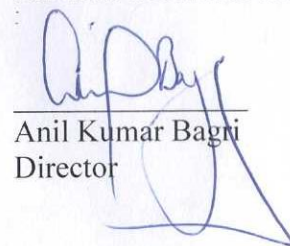 Anil Kumar Bagri
Director